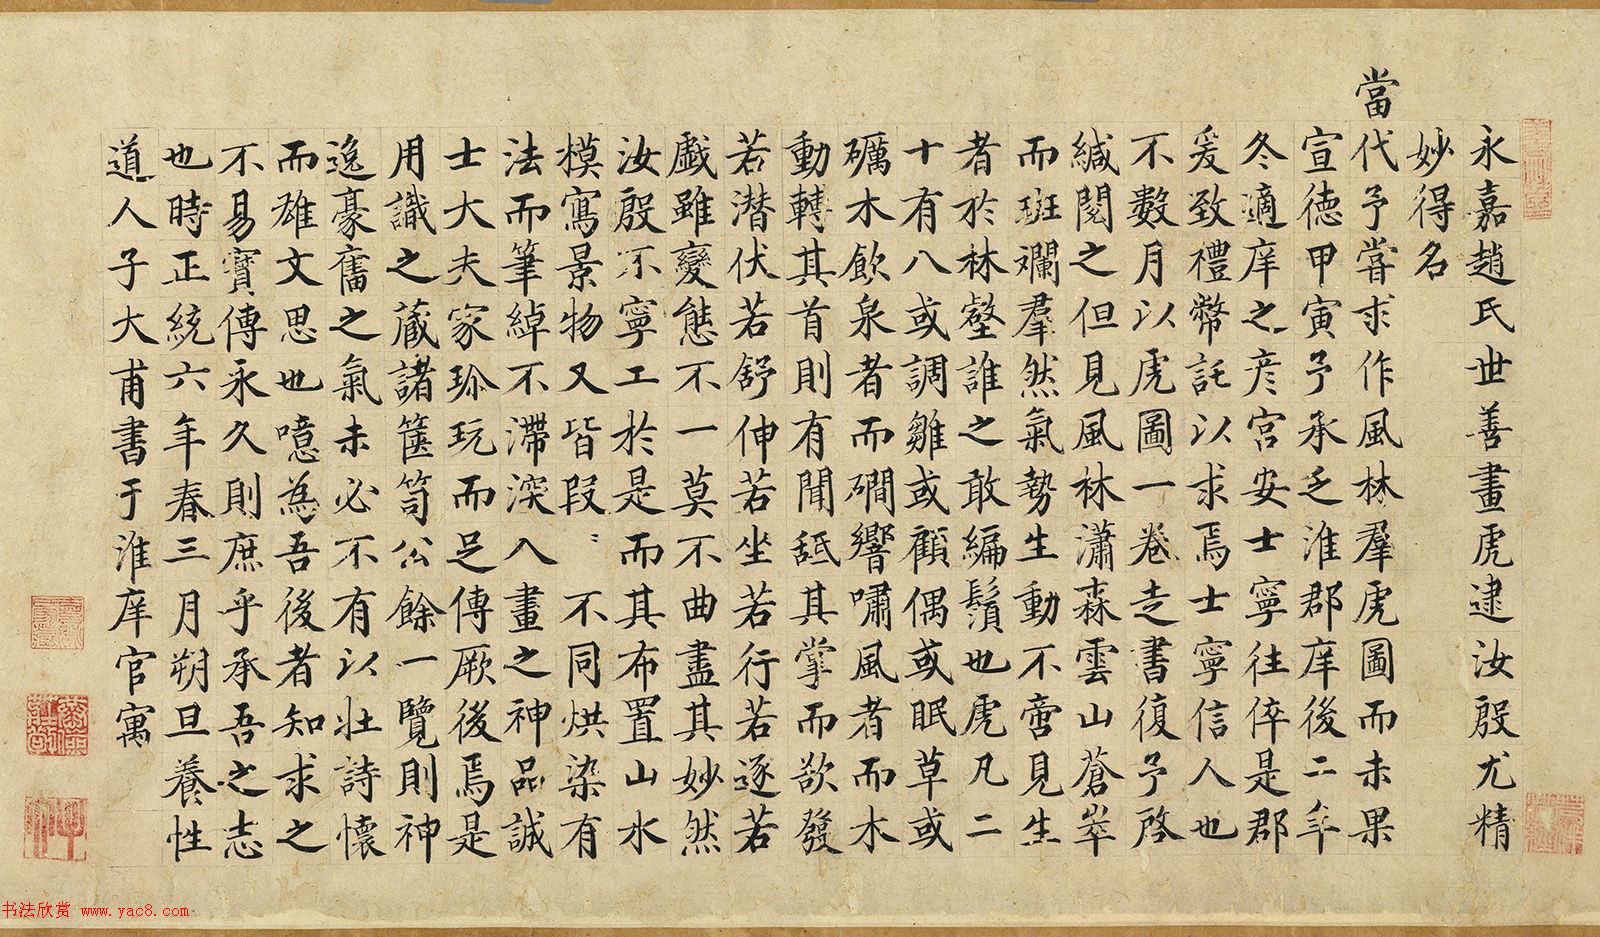 永嘉趙氏世善畫虎逮汝殷尤精
妙得名
當代予嘗求作風林羣虎圖而未果
宣徳甲寅予承乏淮郡庠後二年
冬適庠之彦宫安士寧徃倅是郡
爰致禮幣託以求焉士寧信人也
不數月以虎圖一卷走書復予啓
緘閱之但見風林瀟森雲山蒼崒
而斑斕羣然氣勢生動不啻見生
者於林壑誰之敢編鬚也虎凡二
十有八或調雛或顧偶或眠草或
礪木飲泉者而磵響嘯風者而木
動轉其首則有聞舐其掌而欲發
若潜伏若舒伸若坐若行若逐若
戯雖變態不一莫不曲盡其妙然
汝殷不寧工於是而其布置山水
模寫景物又皆段〻不同烘染有
法而筆綽不滯深入畫之神品誠
士大夫家珎玩而足傳厥後焉是
用識之藏諸篋笥公餘一覽則神
逸豪奮之氣未必不有以壯詩懷
而雄文思也噫為吾後者知求之
不易寳傳永久則庶乎承吾之志
也時正統六年春三月朔旦養性
道人子大甫書于淮庠官寓
书法欣赏 www.yac8.com